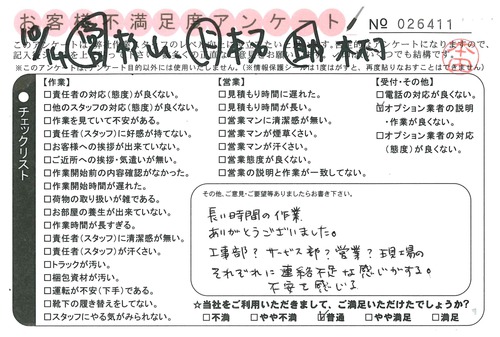 お客様不満足度アンケート
No 026411
このアンケートは
※このアンケートは、アンケート目的以外には使用いたしません。(※情報保護シールは1度はがすと、再度貼りなおすことはできません)
チェックリスト
【作業】
□責任者の対応(態度)が良くない。
□他のスタッフの対応(態度)が良くない。
□作業を見ていて不安がある。
□責任者(スタッフ)に好感が持てない。
□お客様への挨拶が出来ていない。
□ご近所への挨拶・気遣いが無い。
□作業開始前の内容確認がなかった。
□作業開始時間が遅れた。
□荷物の取り扱いが雑である。
□お部屋の養生が出来ていない。
□作業時間が長すぎる。
□責任者(スタッフ)に清潔感が無い。
□責任者(スタッフ)が汗くさい。
□トラックが汚い。
□梱包資材が汚い。
□運転が不安(下手)である。
□靴下の履き替えをしてない。
□スタッフにやる気がみられない。
【営業】
□見積もりに遅れた。
□見積もり時間が長い。
□営業マンに清潔感が無い。
□営業マンが煙草くさい。
□営業マンが汗くさい。
□営業態度が良くない。
□営業の説明と作業が一致してない。
【受付・その他】
□電話の対応が良くない。
□オプション業者の説明・作業が良くない。
□オプション業者の対応(態度)が良くない。
その他、ご意見・ご要望等ありましたらお書き下さい。
長い時間の作業
ありがとうございました。
工事部?サービス部?営業?現場の
それぞれに連絡不足な感じがする。
不安を感じる
☆当社をご利用いただきまして、ご満足いただけたでしょうか?
□不満 □やや不満 ☑普通 □やや満足 □満足